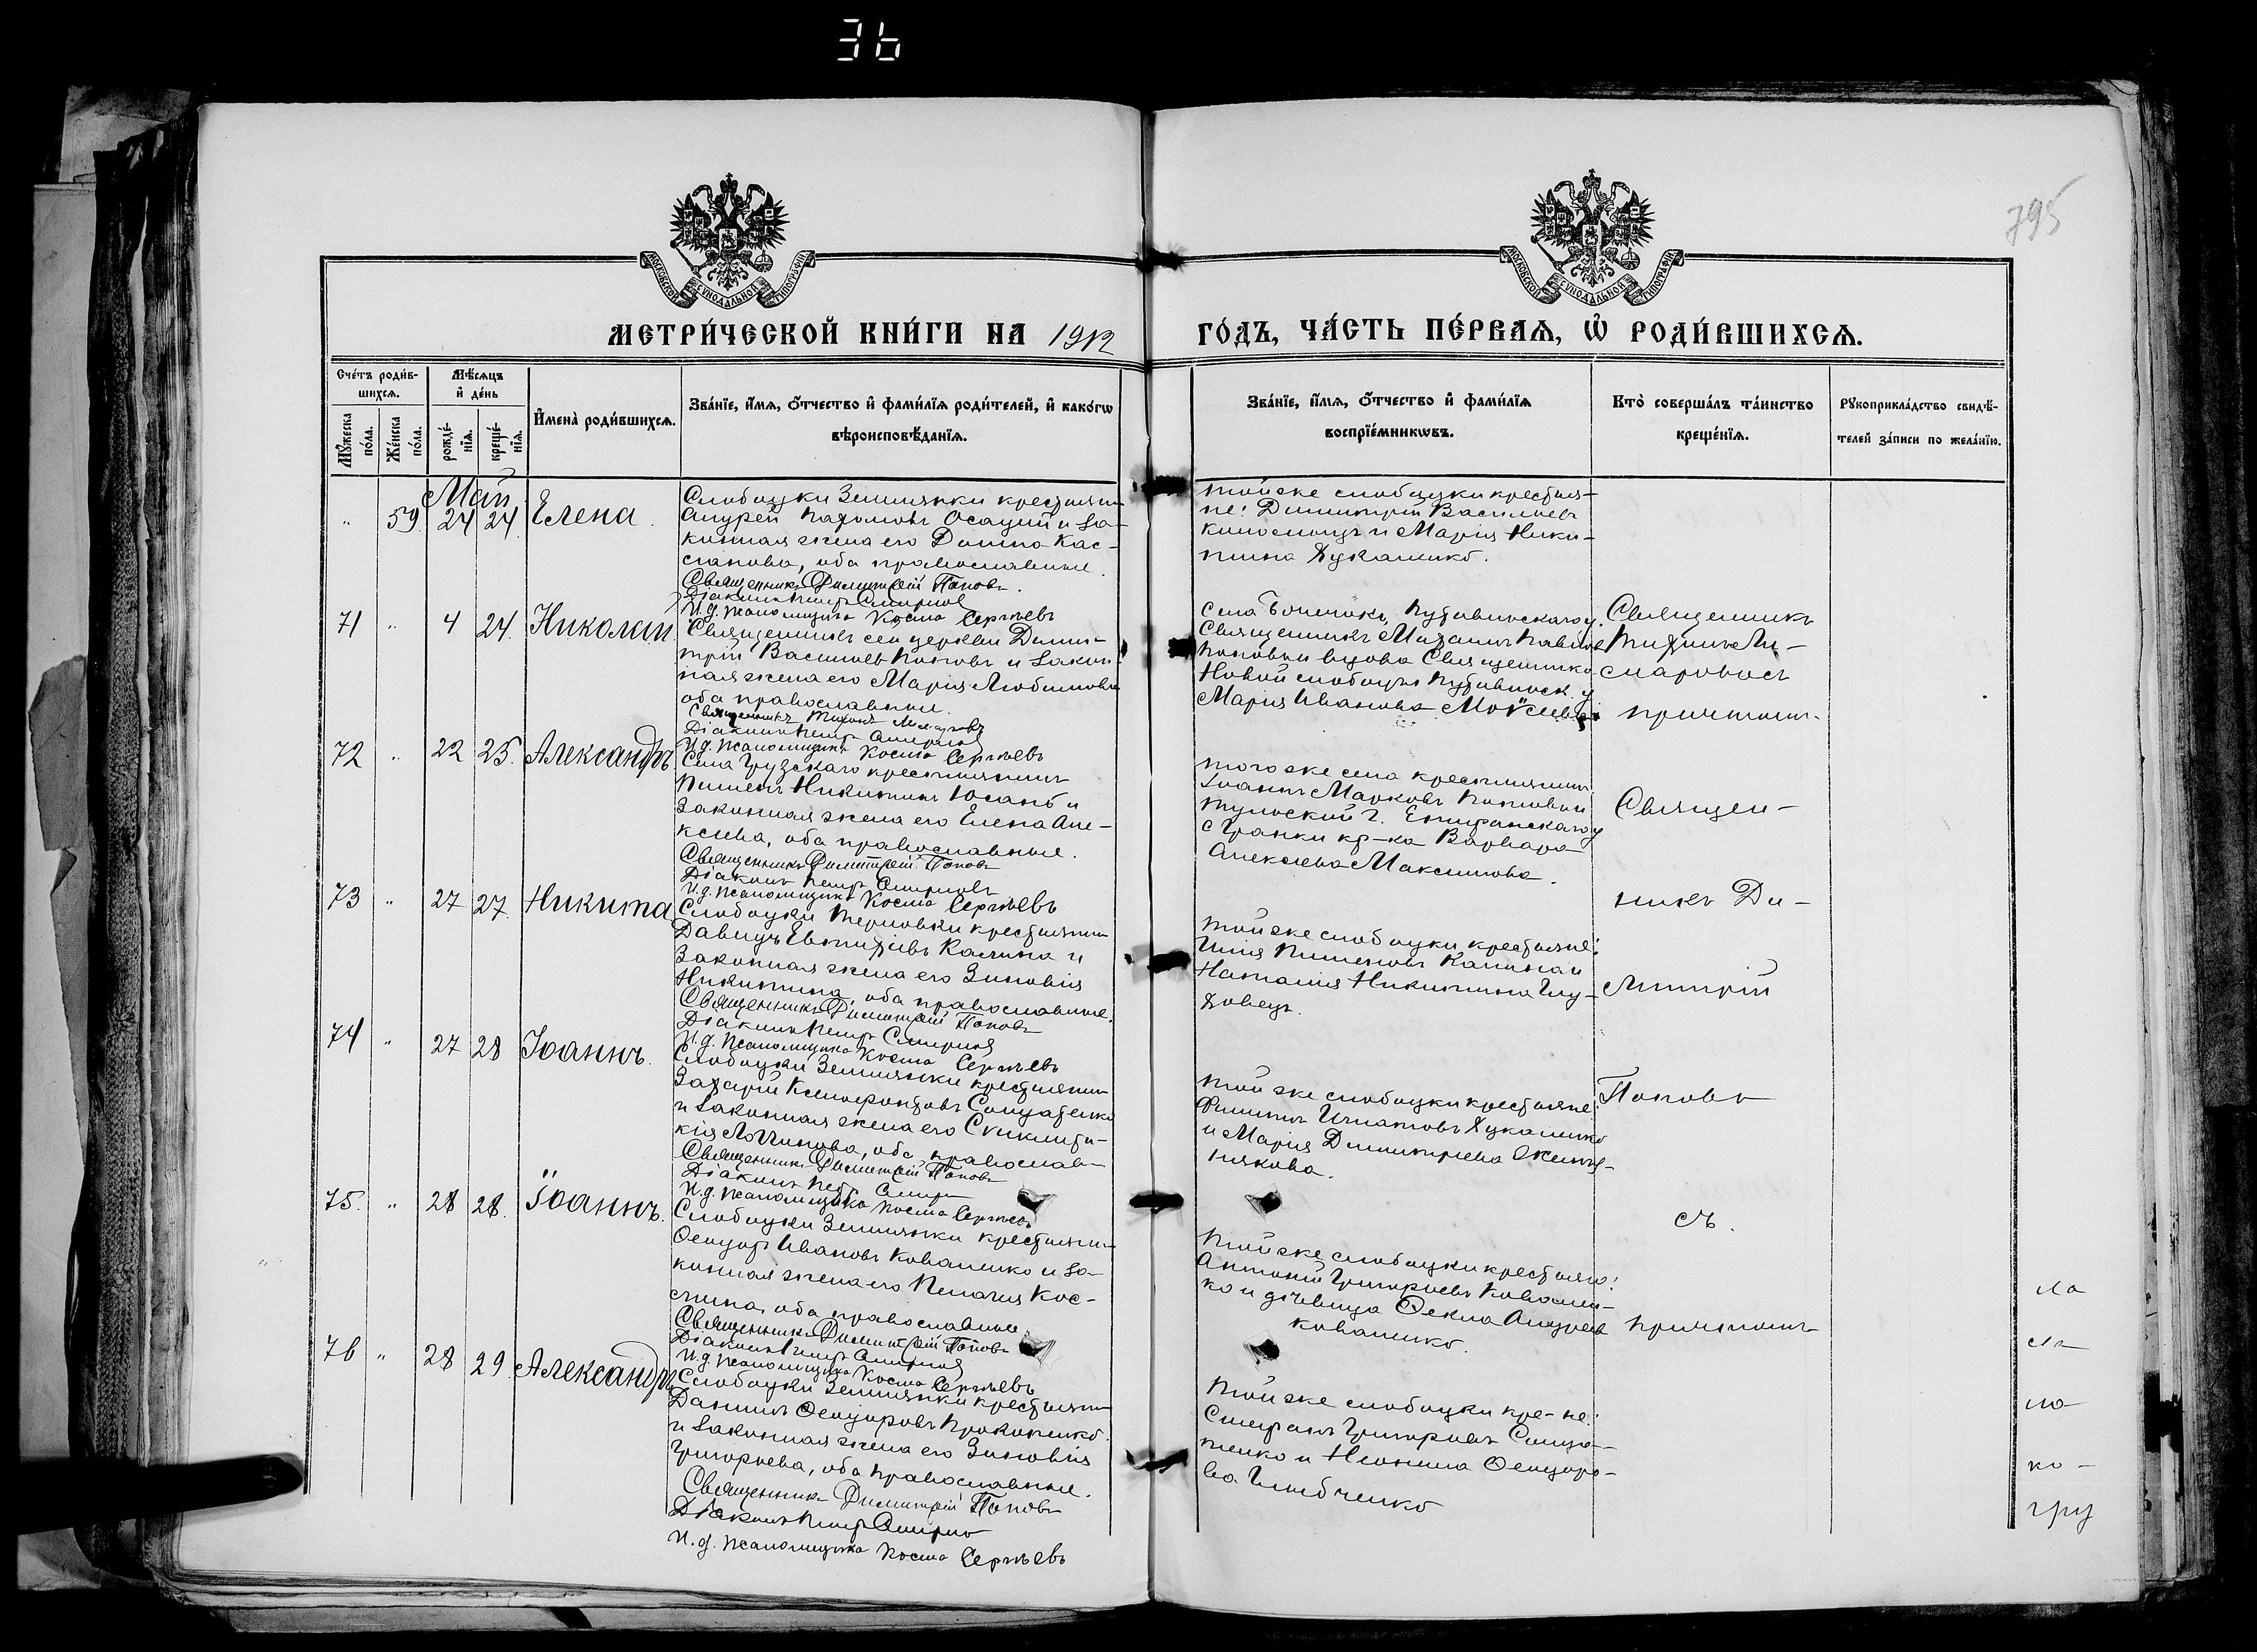 36
795
МОСКОВСКОЙ СУНОДАЛЬНОЙ ТИПОГРАФІИ
МОСКОВСКОЙ СУНОДАЛЬНОЙ ТИПОГРАФІИ
МЕТРИ́ЧЕСКОЙ КНИ́ГИ НА 1912
ГО́ДЪ, ЧА́СТЬ ПЕ́РВАѦ, Ѡ҆ РОДИ́ВШИХСѦ.
Сче́тъ роди́в-
шихсѧ.
Мꙋ́жеска по́ла.
Же́нска по́ла.
Мѣ́сѧцъ
и҆ де́нь
рожде́-
нїѧ.
креще́-
нїѧ.
И҆мена̀ роди́вшихсѧ.
Зва́нїе, и҆́мѧ, ѻ҆́тчество и҆ фами́лїѧ роди́телей, и҆ како́гѡ
вѣроисповѣ́данїѧ.
Зва́нїе, и҆́мѧ, ѻ҆́тчество и҆ фами́лїѧ
воспрїе́мникѡвъ.
Кто̀ соверша́лъ та́инство
креще́нїѧ.
Рꙋкоприкла́дство свидѣ́-
телей за́писи по жела́нїю.
Май
" 59 24 24 Елена
Слободки Землянки крестьянин
Андрей Пахомовъ Осадчій и за-
конная жена его Домна Кас-
сіанова, оба православные.
Священникъ Димитрій Поповъ
Діаконъ Петръ Смирнов
И.д. псаломщика Косма Сергѣевъ
той же слободки крестья-
не: Димитрій Васильевъ
и Марія Ники-
тина Лукашенко.
71 " 4 24 Николай
Священникъ сей церкви Дими-
трій Васильевъ Поповъ и закон-
ная жена его Марія Любимова
оба православные.
Священникъ Тихонъ
Діаконъ Петръ Смирнов
И.д. псаломщика Косма Сергѣевъ
Села Путивльскаго у.
Священникъ Михаилъ Павлов
Поповъ и вдова Священника
Новой слободы Путивльск. у
Марія Иванова Моѵсеева
Священникъ
Тихонъ
съ
причтомъ
72 " 22 25 Александръ
Села Грузскаго крестьянинъ
Пименъ Никитинъ и
законная жена его Елена Але-
ксѣева, оба православные.
Священникъ Димитрій Поповъ
Діаконъ Петръ Смирновъ
И.д. псаломщика Косма Сергѣевъ
того же села крестьянинъ
Іоаннъ Марковъ Поповъ и
Тульской г. Епифанскаго у
кр-ка Варвара
Алексѣева Максимова.
Священ-
никъ Ди-
митрій
Поповъ
съ
причтомъ
73 " 27 27 Никита
Слободки Терновки крестьянин
Давидъ Евтихіевъ Калина и
законная жена его Зиновія
Никитина, оба православные.
Священникъ Димитрій Поповъ
Діаконъ Петръ Смирнов
И.д. псаломщика Косма Сергѣевъ
той же слободки крестьяне:
Илія Пименовъ Калина и
Наталія Никитина Глу-
ховецъ.
74 " 27 28 Іоаннъ.
Слободки Землянки крестьянин
Захарій Ксенофонтовъ Солдатенко
и законная жена его
Логгинова, оба православ-
Священникъ Димитрій Поповъ
Діаконъ Петръ Смирн
И.д. псаломщика Косма Сергѣевъ
той же слободки крестьяне:
Филиппъ Игнатовъ Лукашенко
и Марія Димитріева
75. " 28 28. Іоаннъ.
Слободки Землянки крестьянин
Ѳеодоръ Ивановъ Коваленко и за-
конная жена его Пелагія Кос-
мина, оба православные.
Священникъ Димитрій Поповъ
Діаконъ Петръ Смирнов
И.д. псаломщика Косма Сергѣевъ
той же слободки крестьяне:
Антоній Григорьевъ Ковален-
ко и дѣвица Ѳекла Андреев
Коваленко.
76 " 28 29 Александръ
Слободки Землянки крестьянин
Даніилъ Ѳеодоровъ Прокопенко
и законная жена его Зиновія
Григорьева, оба православные.
Священникъ Димитрій Поповъ
Діаконъ Петръ Смирно
И.д. псаломщика Косма Сергѣевъ
той же слободки кре-не:
Стефанъ Григорьевъ Солда-
тенко и Неонила Ѳеодоро-
ва
гру